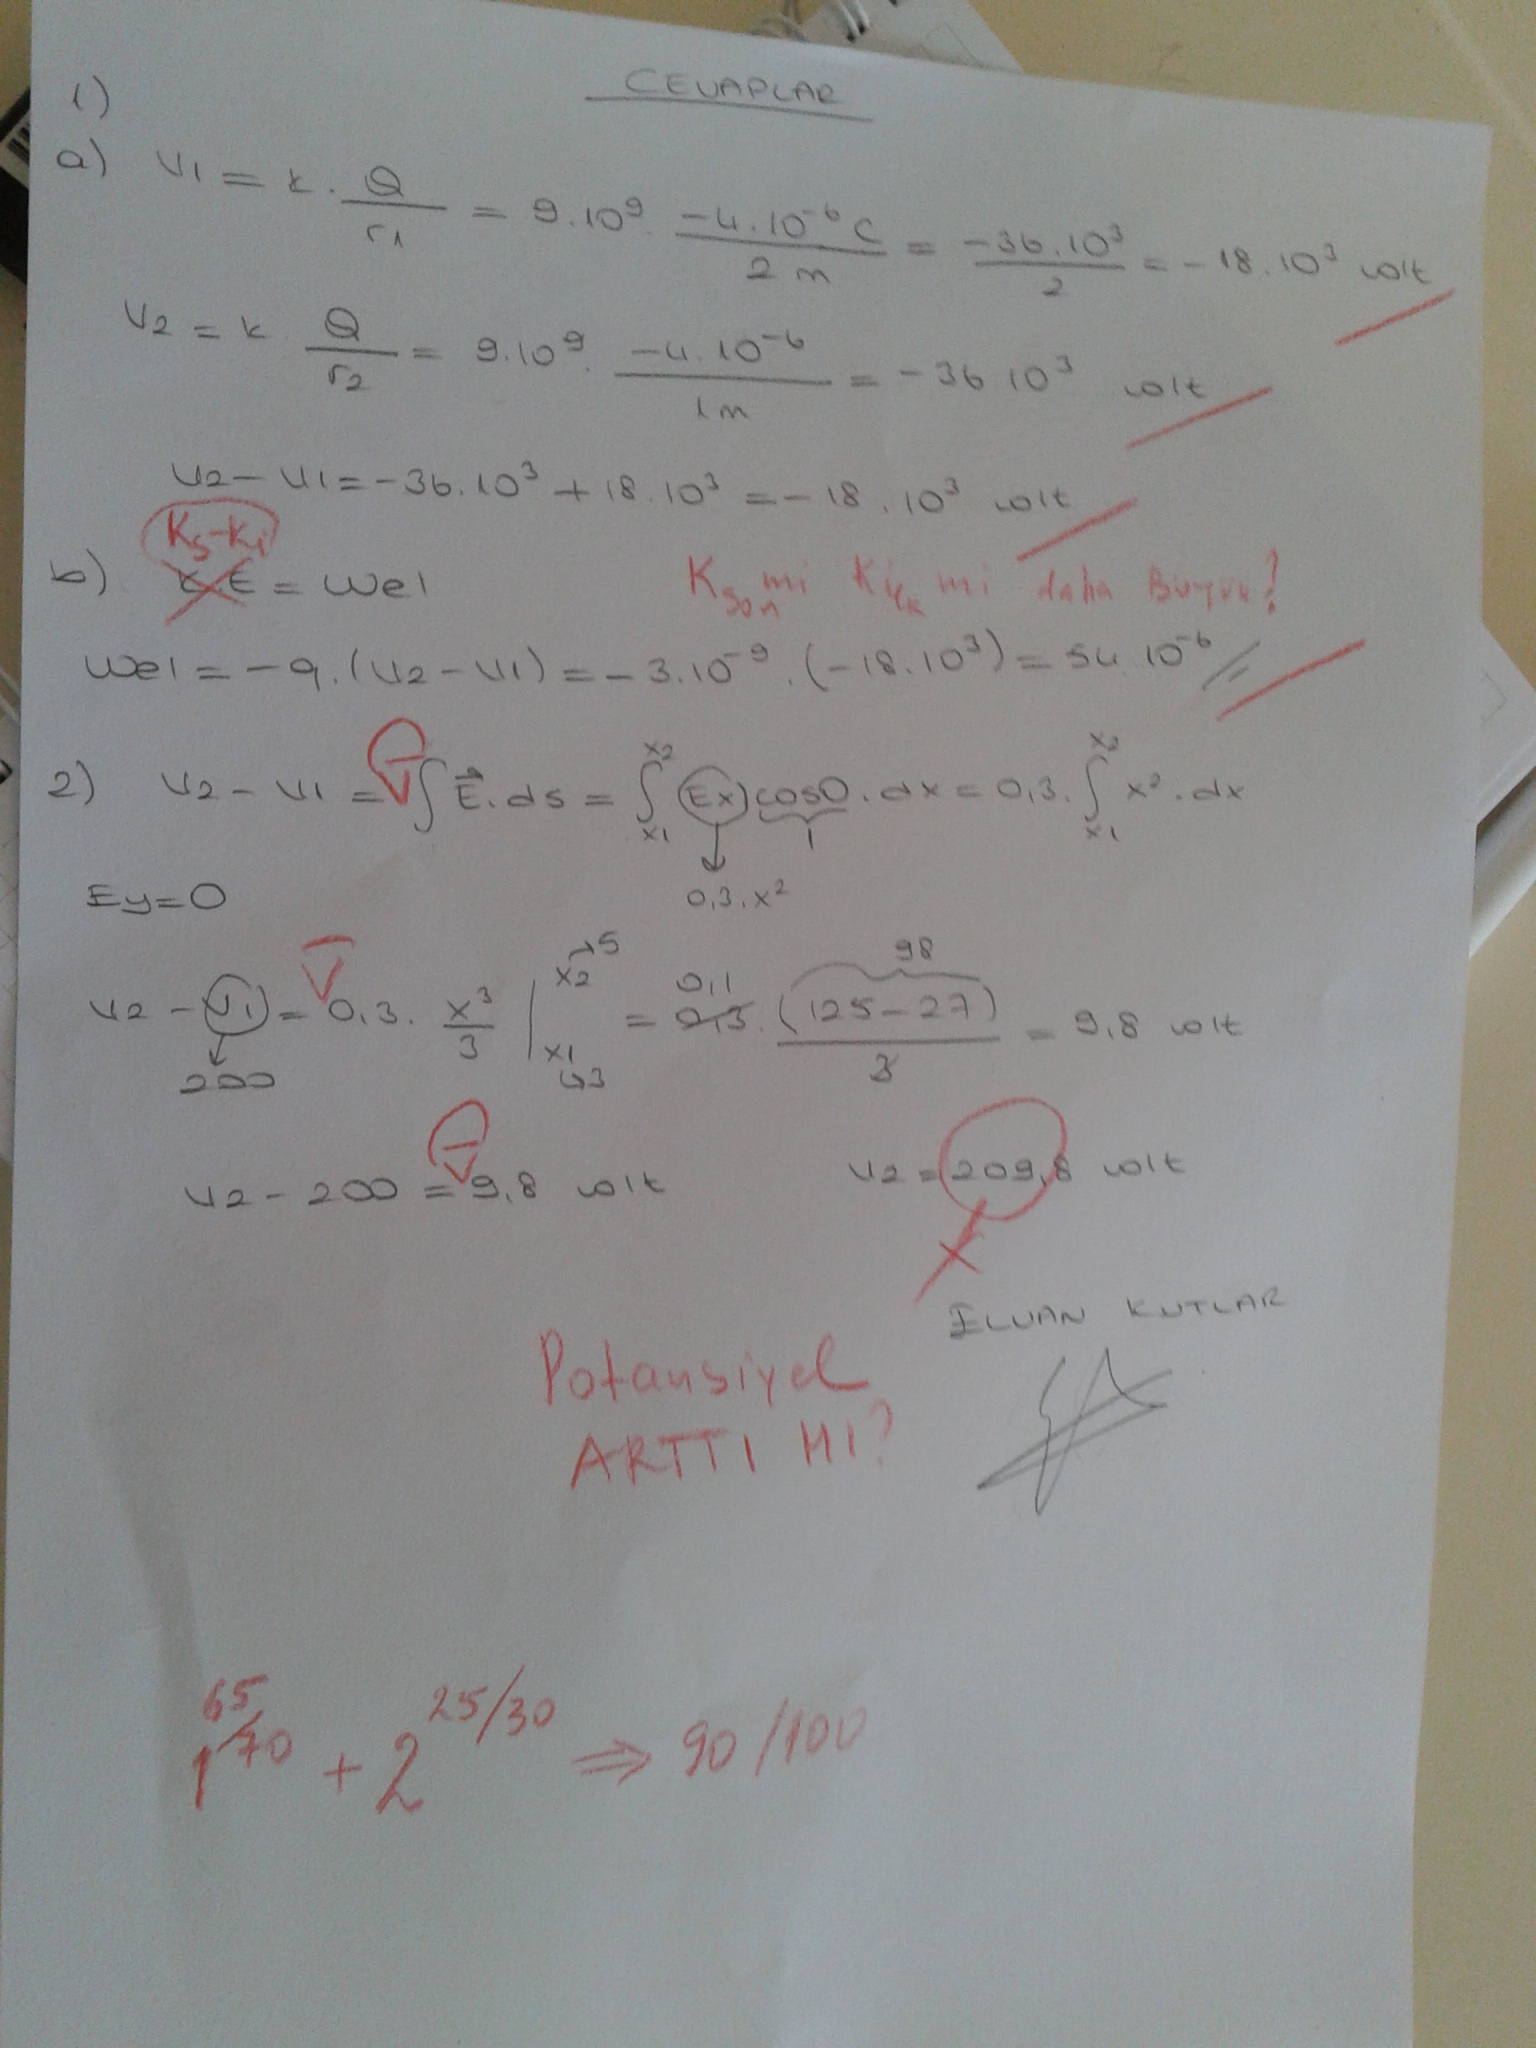 CEVAPLAR
1)
a) V1 = k. Q/r1 = 9.10⁹. -4.10⁻⁶ C/2 m = -36.10³/2 = -18.10³ volt
V2 = k Q/r2 = 9.10⁹. -4.10⁻⁶/1m = -36 10³ volt
V2-V1 = -36.10³ + 18.10³ = -18.10³ volt
Ks-Ki
b) K.E = Wel Kson mi Kilk mi daha Büyük?
Wel = -q.(V2-V1) = -3.10⁻⁹.(-18.10³) = 54.10⁻⁶ //
2) V2 - V1 = - ∫ E⃗.ds = ∫x1 x2 (Ex) cos0.dx = 0,3. ∫x1 x2 x².dx
1
Ey=0 0,3.x²
V2 - V1 = - 0,3. x³/3 | x2→5 x1→3 = 0,1 0,3. (125-27)/3 = 9,8 volt
200 98
V2 - 200 = - 9,8 volt V2 = 209,8 volt
X
ELVAN KUTLAR
Potansiyel
ARTTI MI?
1 65/70 + 2 25/30 ⇒ 90/100